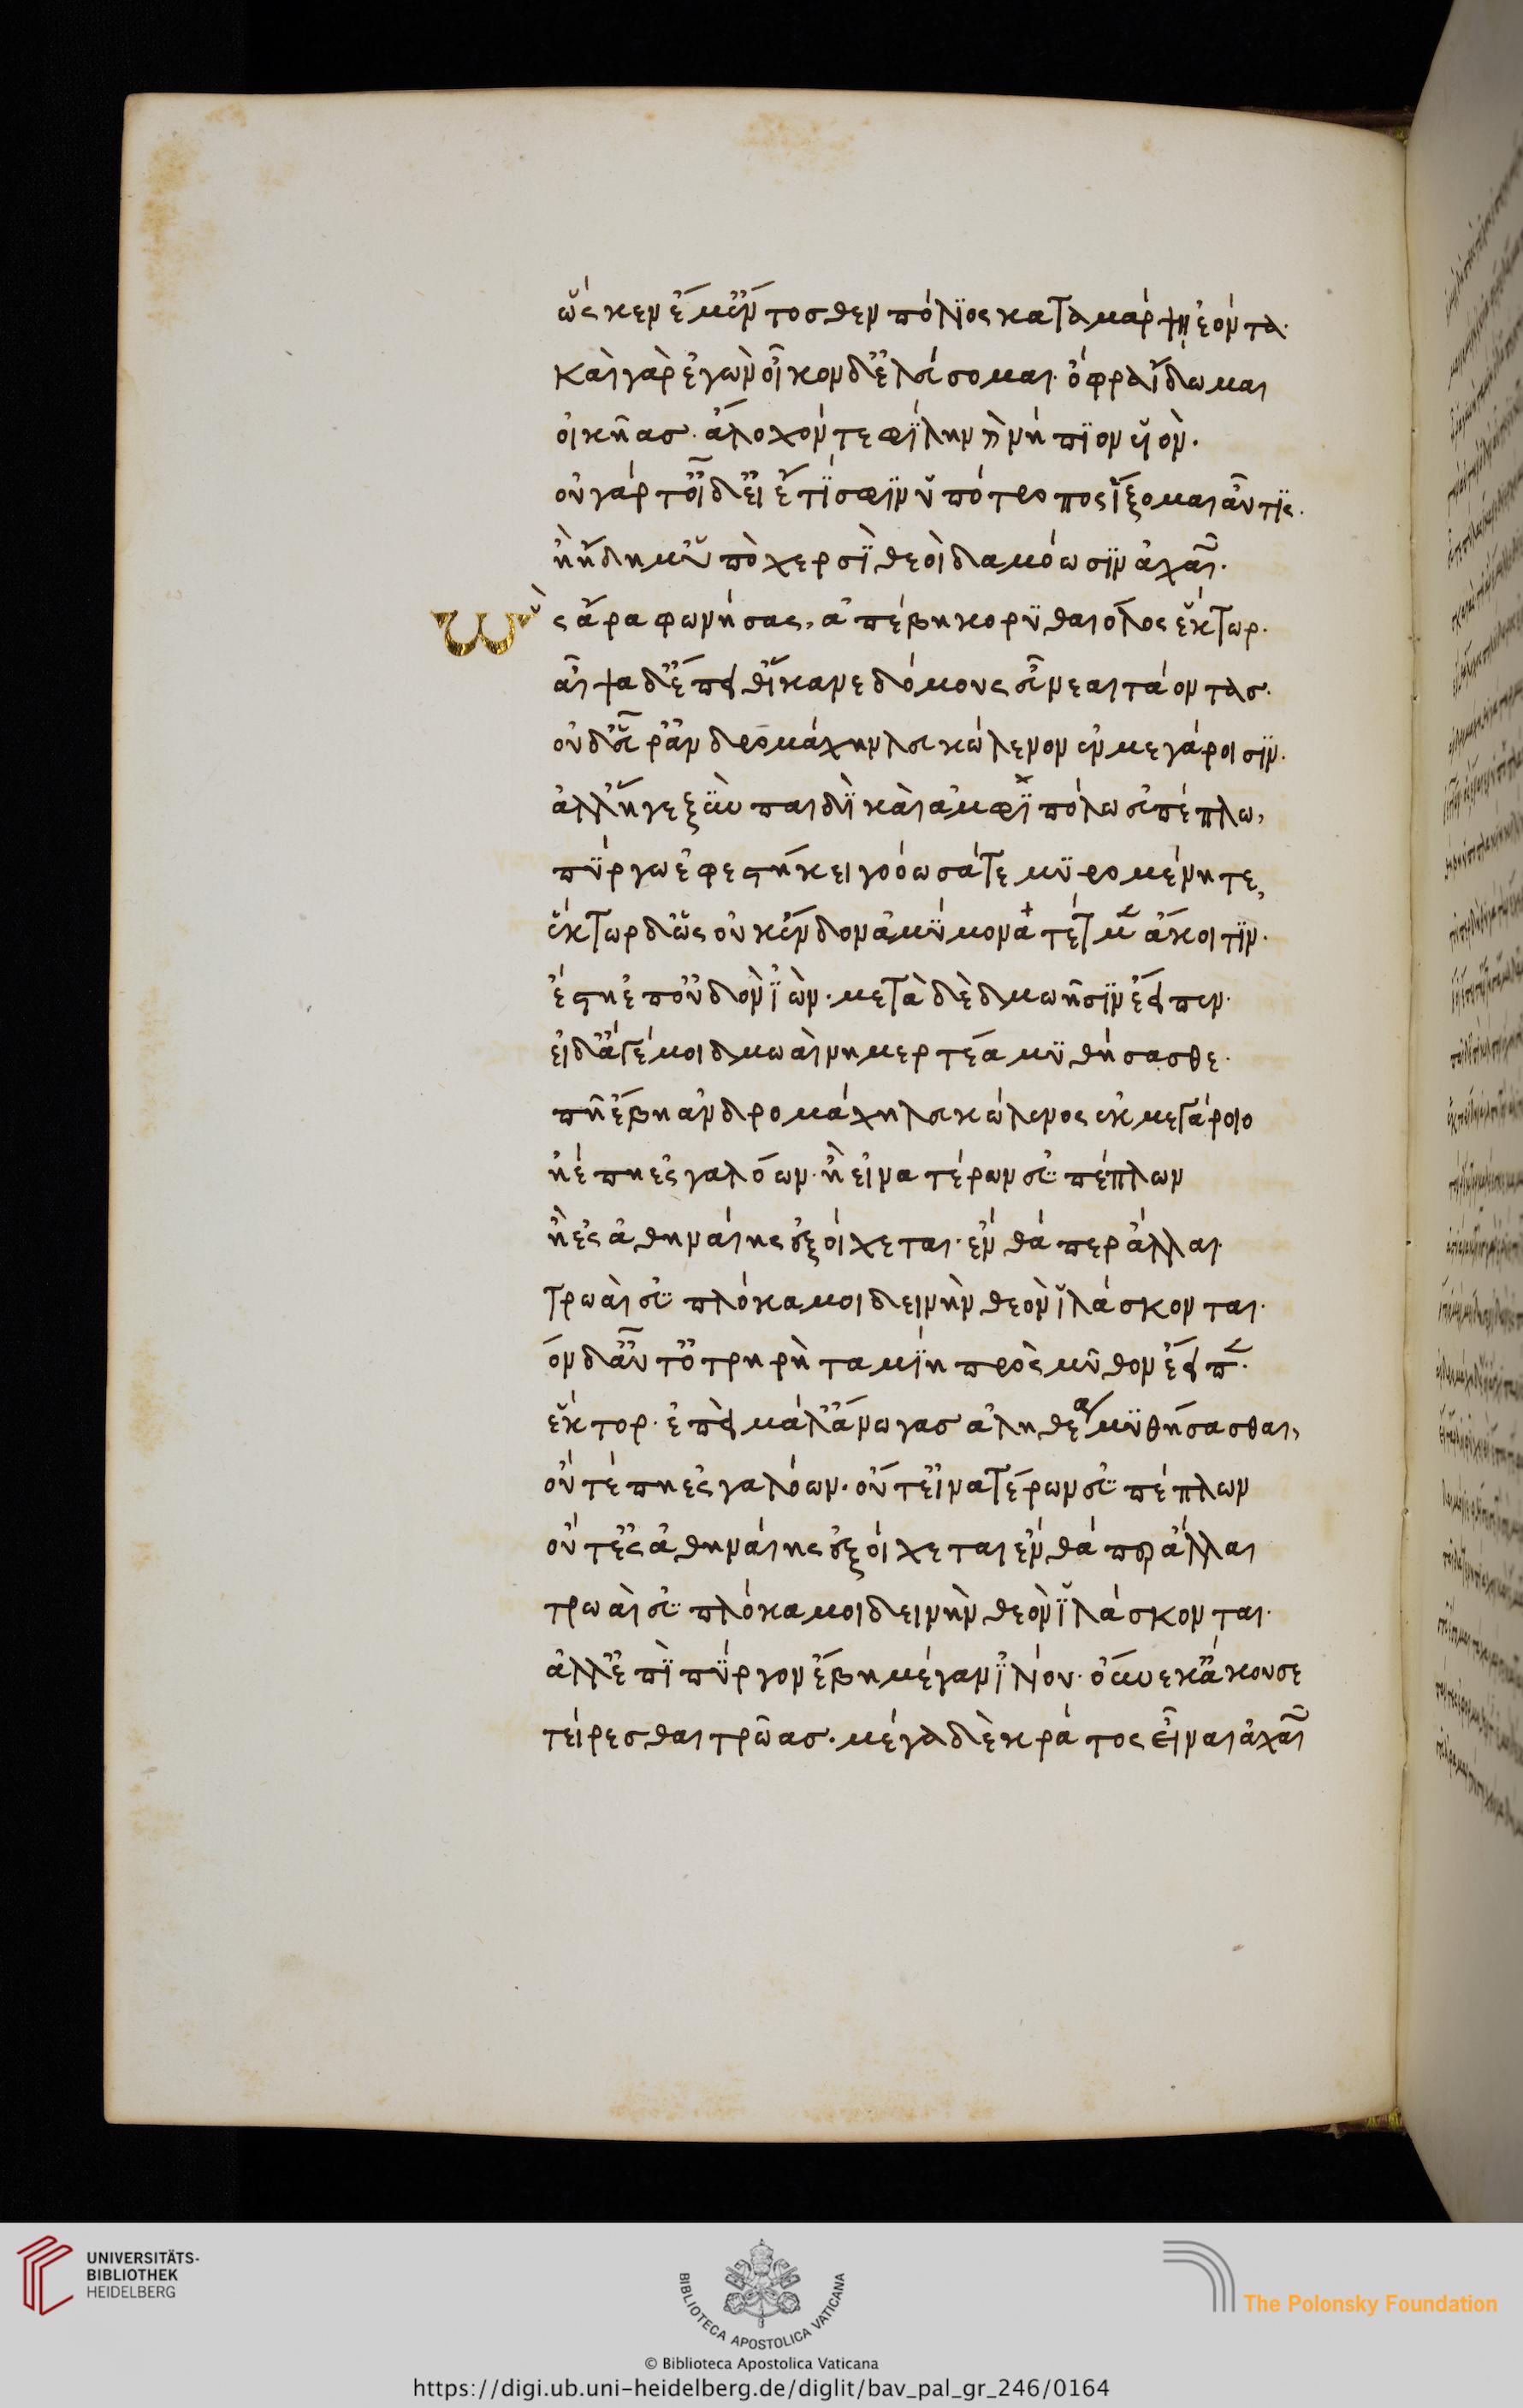 ὥς κεν ἔμ' ἔντοσθεν πόλϊος καταμάρψῃ ἐόντα·
καὶ γὰρ ἐγὼν οἶκονδ' ἐλεύσομαι· ὄφρα ἴδωμαι
οἰκῆας· ἄλοχόν τε φΐλην κὶ νήπϊον υἱόν.
οὐ γάρ τ' οἶδ' εἰ ἔτϊ σφϊν ὑπότροπος ἵξομαι αὖτϊς.
ἢ ἤδη μ' ὑπὸ χερσϊ θεοὶ δαμόωσϊν ἀχαιῶν.
Ὣς ἄρα φωνήσας, ἀπέβη κορϋθαιόλος ἕκτωρ.
αἶψα δ' ἔπειθ' ἵκανε δόμους εὖ ναιετάοντας.
οὐδ' εὗρ' ἀνδρομάχην λευκώλενον ἐν μεγάροισϊν.
ἀλλ' ἥγε ξὺν παιδϊ καὶ ἀμφϊπόλω εὐπέπλω,
πΰργω ἐφεστήκει γοόωσά τε μϋρομένη τε,
ἕκτωρ δ' ὡς οὐκ ἔνδον ἀμΰμονα τέτμεν ἄκοιτϊν.
ἔστη ἐπ' οὐδὸν ἰών· μετὰ δὲ δμωῆσϊν ἔειπεν·
εἰ δ' ἄγέ μοι δμωαὶ νημερτέα μϋθήσασθε·
πῆ ἔβη ἀνδρομάχη λευκώλενος ἐκ μεγάροιο
ἠέ πη ἐς γαλόων· ἢ εἰνατέρων εὐπέπλων
ἢ ἐς ἀθηναίης ἐξοίχεται· ἔνθά περ ἄλλαι·
τρωαὶ εὐπλόκαμοι δεινὴν θεὸν ἱλάσκονται·
ὃν δ' αὖτ' ὀτρηρὴ ταμΐη πρὸς μῦθον ἔειπεν·
ἕκτορ· ἐπεὶ μάλ' ἄνωγας ἀληθέα μϋθήσασθαι,
οὔτέ πη ἐς γαλόων· οὔτ' εἰνατέρων εὐπέπλων
οὔτ' ἐς ἀθηναίης ἐξοίχεται ἔνθά περ ἄλλαι
τρωαὶ εὐπλόκαμοι δεινὴν θεὸν ἱλάσκονται·
ἀλλ' ἐπϊ πΰργον ἔβη μέγαν ἰλίου· οὕνεκ' ἄκουσε
τείρεσθαι τρῶας· μέγα δὲ κράτος εἶναι ἀχαιῶν
UNIVERSITÄTS-
BIBLIOTHEK
HEIDELBERG
BIBLIOTECA APOSTOLICA VATICANA
The Polonsky Foundation
© Biblioteca Apostolica Vaticana
https://digi.ub.uni-heidelberg.de/diglit/bav_pal_gr_246/0164